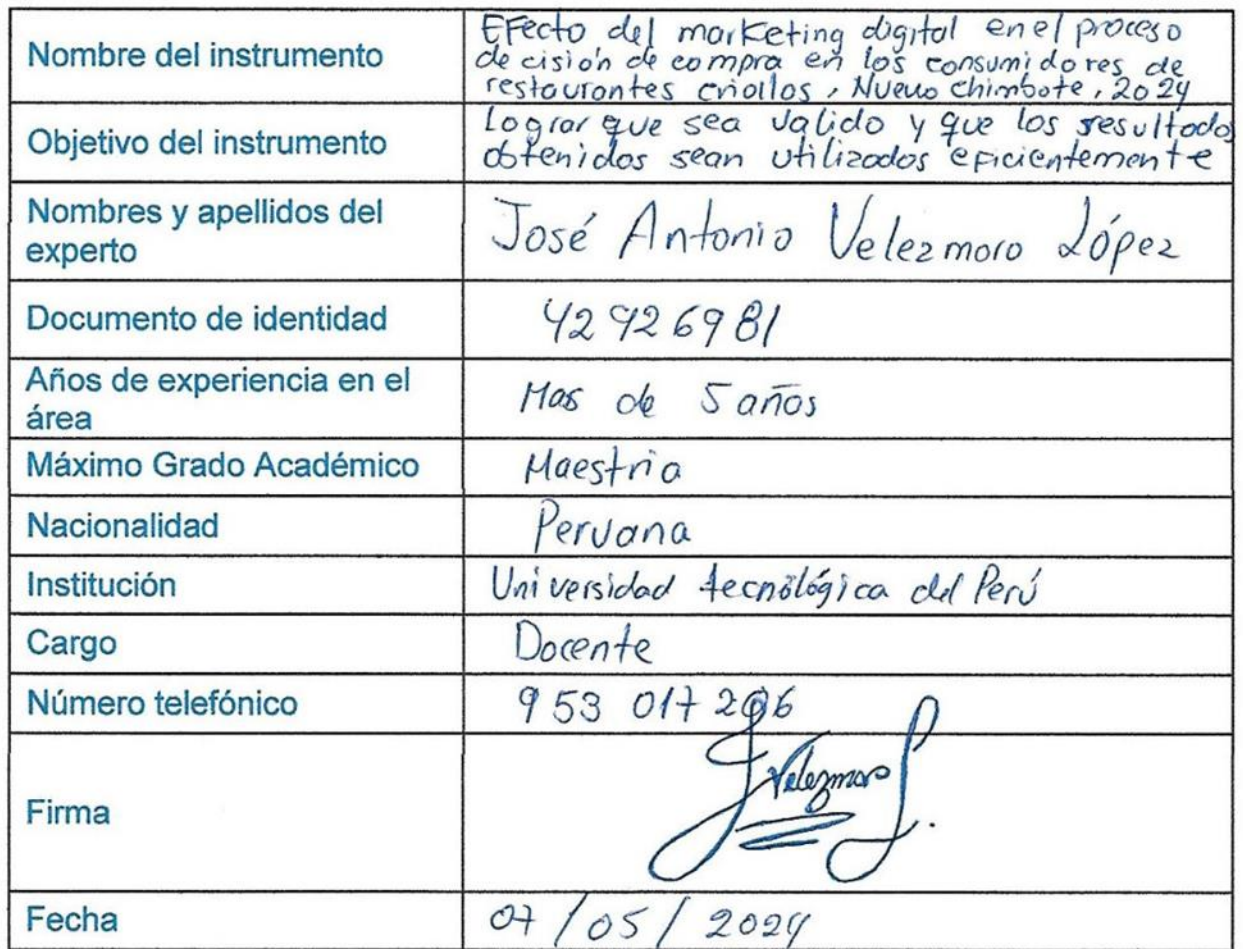 Nombre del instrumento
Efecto del marketing digital en el proceso
decisión de compra en los consumidores de
restaurantes criollos, Nuevo Chimbote, 2024
Objetivo del instrumento
Lograr que sea valido y que los resultado
obtenidos sean utilizados eficientemente
Nombres y apellidos del
experto
José Antonio Velezmoro López
Documento de identidad
42926981
Años de experiencia en el
área
Mas de 5 años
Máximo Grado Académico
Maestria
Nacionalidad
Peruana
Institución
Universidad tecnológica del Perú
Cargo
Docente
Número telefónico
953 017 206
Firma
Velezmoro L.
Fecha
07/05/2024